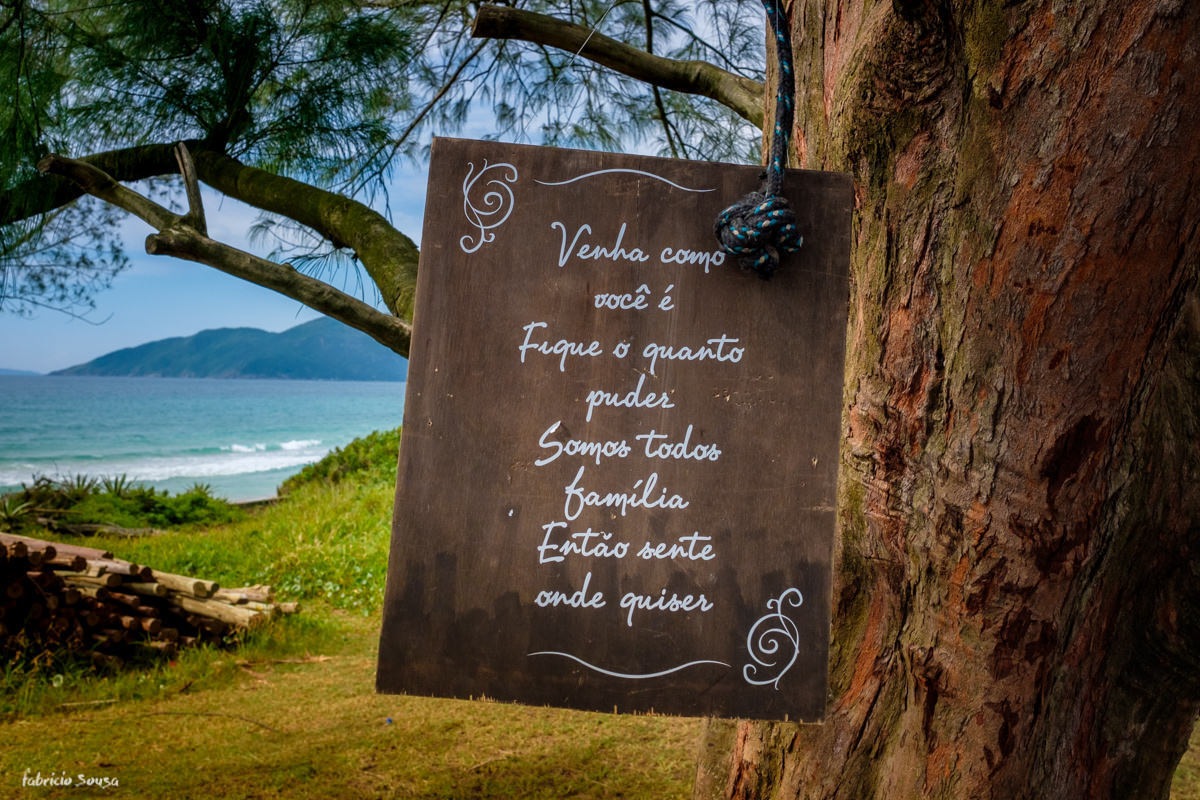 Venha como
você é
Fique o quanto
puder
Somos todos
família
Então sente
onde quiser
fabricio Sousa